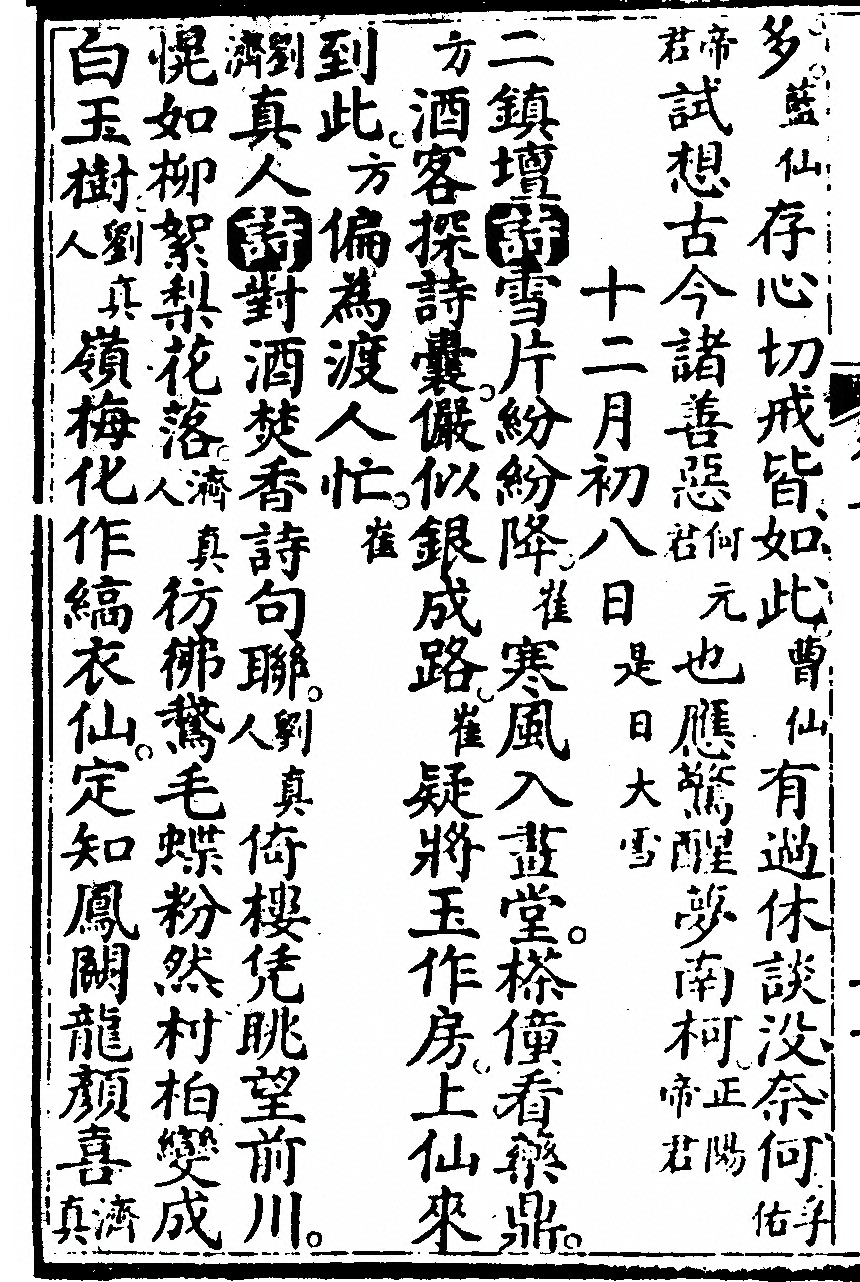 多藍仙存心切戒皆如此曹仙有過休談没奈何孚佑
帝君試想古今諸善惡何元君也應驚醒夢南柯正陽帝君
十二月初八日是日大雪
二鎮壇詩雪片紛紛降崔寒風入畫堂。榤僮看藥鼎。
方酒客探詩囊。儼似銀成路。崔疑將玉作房。上仙來
到此。方偏為渡人忙。崔
劉濟真人詩對酒焚香詩句聯。劉真人倚樓凭眺望前川。
愰如柳絮梨花落。濟真人彷彿鵞毛蝶粉然村柏變成
白玉樹劉真人嶺梅化作縞衣仙。定知鳳闕龍顏喜濟真